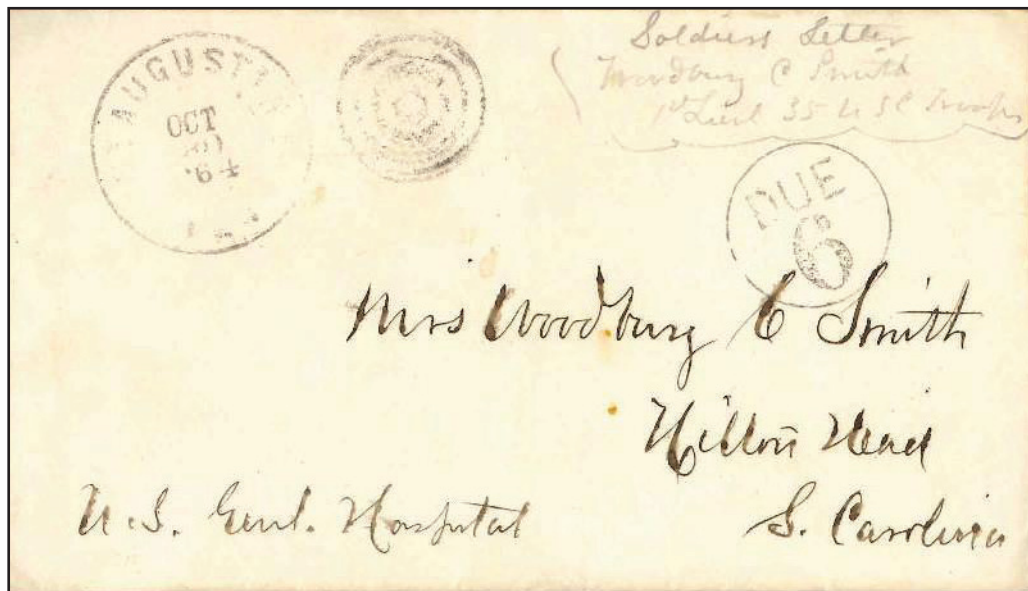 AUGUSTI
OCT
'64
Soldiers Letter
Woodbury C Smith
1st Lieut 35 U S C Troops
DUE
6
Mrs Woodbury C Smith
Hilton Head
S. Carolina
U.S. Genl. Hospital